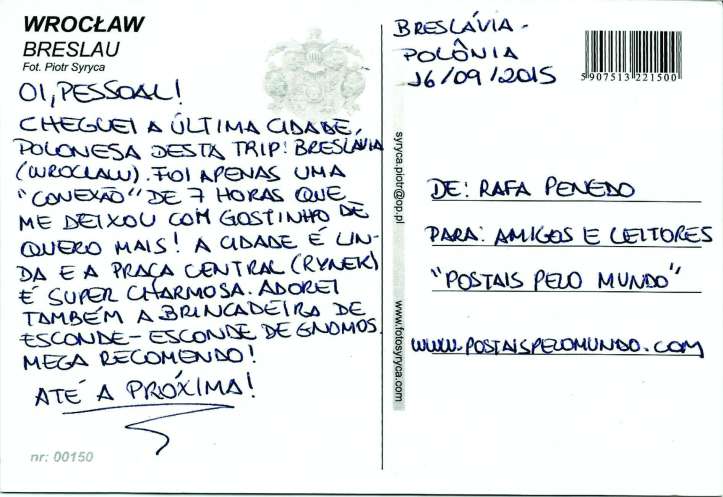 WROCŁAW
BRESLAU
Fot. Piotr Syryca
OI, PESSOAL!
CHEGUEI A ÚLTIMA CIDADE,
POLONESA DESTA TRIP: BRESLAVIA
(WROCLAW). FOI APENAS UMA
"CONEXÃO" DE 7 HORAS QUE
ME DEIXOU COM GOSTINHO DE
QUERO MAIS! A CIDADE É LIN-
DA E A PRAÇA CENTRAL (RYNEK)
É SUPER CHARMOSA. ADOREI
TAMBÉM A BRINCADEIRA DE
ESCONDE-ESCONDE DE GNOMOS.
MEGA RECOMENDO!
ATÉ A PRÓXIMA!
nr: 00150
syryca.piotr@op.pl
www.fotosyryca.com
BRESLÁVIA -
POLÔNIA
16/09/2015
5 907513 221500
DE: RAFA PENEDO
PARA: AMIGOS E LEITORES
"POSTAIS PELO MUNDO"
WWW.POSTAISPELOMUNDO.COM